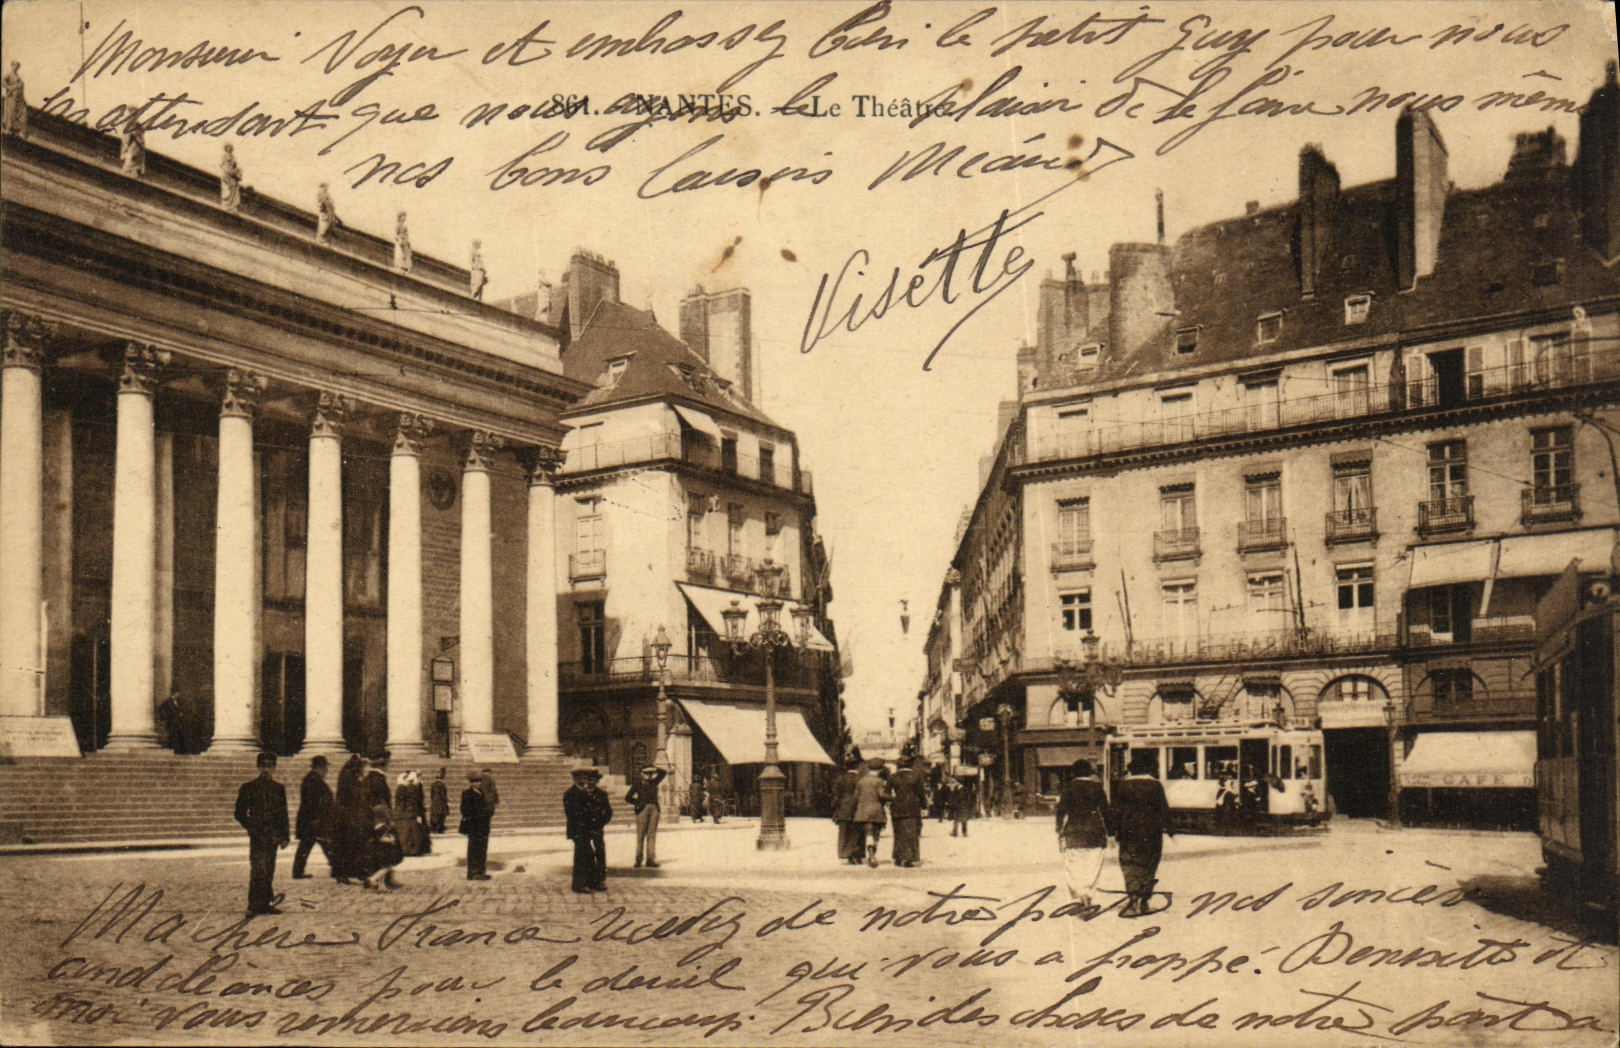 Monsieur Voyer et embrassez bien le petit Guy pour nous
en attendant que nous ayons le plaisir de le faire nous même
861. - NANTES. - Le Théâtre
nos bons baisers
Visette
CAFE
Ma chère France recevez de notre part nos sincères
condoléances pour le deuil qui vous a frappé. et
moi vous remercions beaucoup. Bien des choses de notre part a